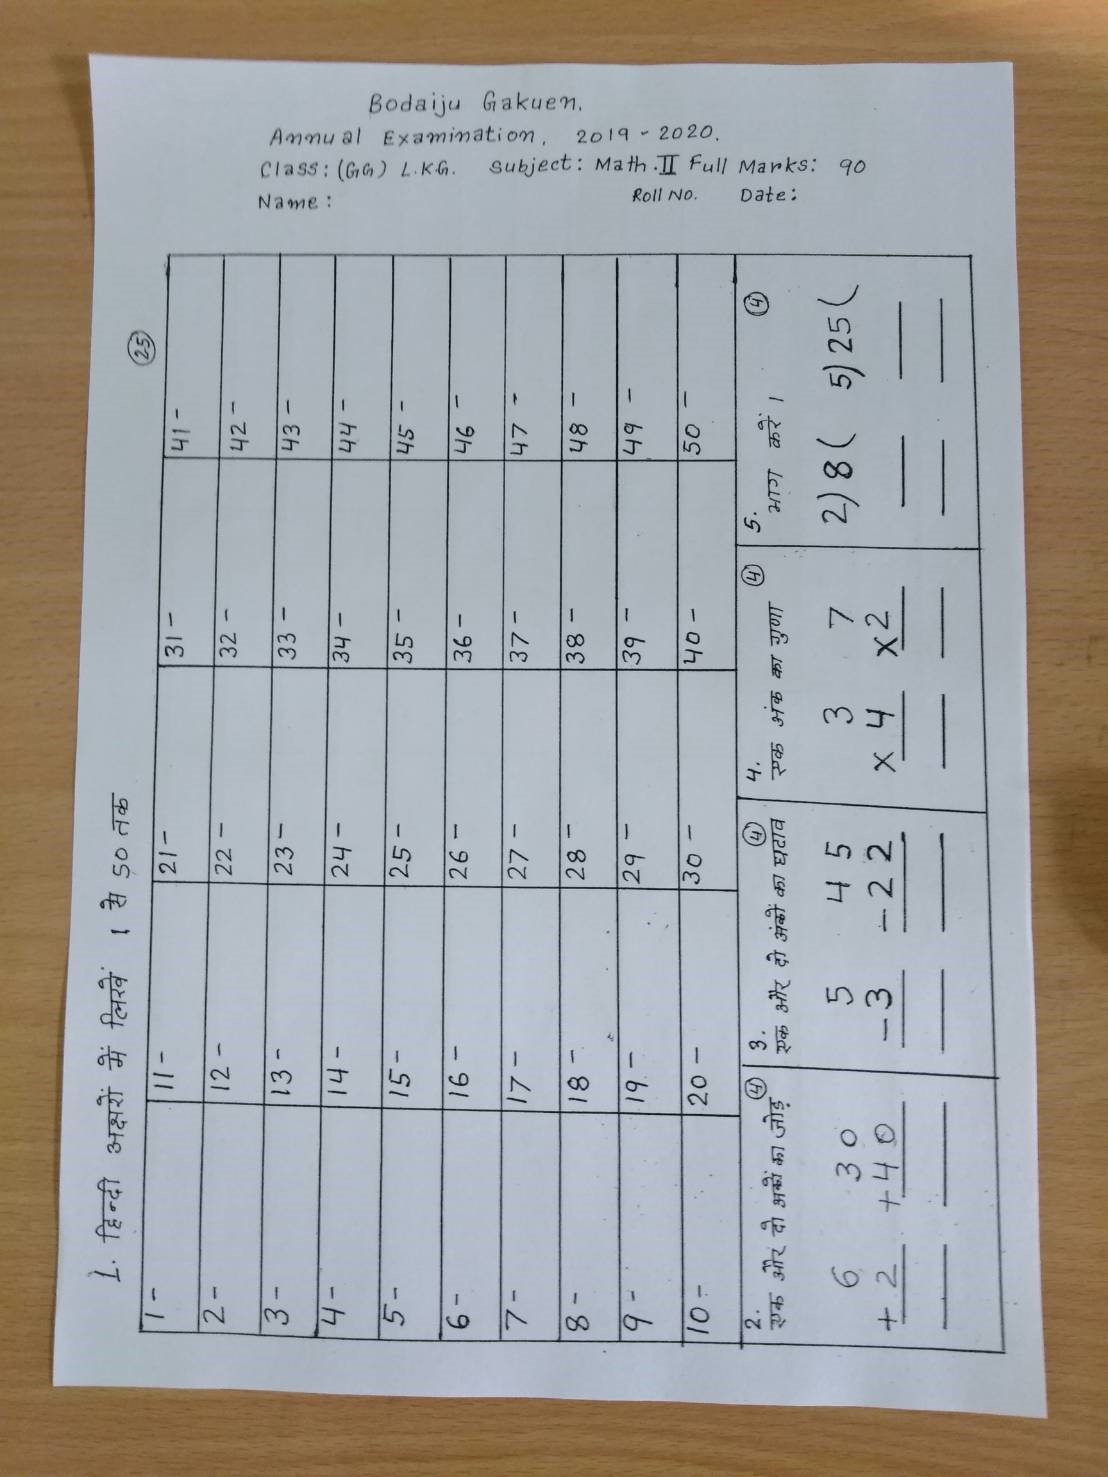 Bodaiju Gakuen.
Annual Examination, 2019-2020.
Class: (GG) L.K.G. Subject: Math.II Full Marks: 90
Name: Roll No. Date:
1. हिन्दी अक्षरों में लिखें 1 से 50 तक (25)
1- 11- 21- 31- 41-
2- 12- 22- 32- 42-
3- 13- 23- 33- 43-
4- 14- 24- 34- 44-
5- 15- 25- 35- 45-
6- 16- 26- 36- 46-
7- 17- 27- 37- 47-
8- 18- 28- 38- 48-
9- 19- 29- 39- 49-
10- 20- 30- 40- 50-
2. (4)
एक और दो अकों का जोड़
6 30
+2 +40
3. (4)
एक और दो अंकों का घटाव
5 45
-3 -22
4. (4)
एक अंक का गुणा
3 7
×4 ×2
5. (4)
भाग करें।
2)8( 5)25(